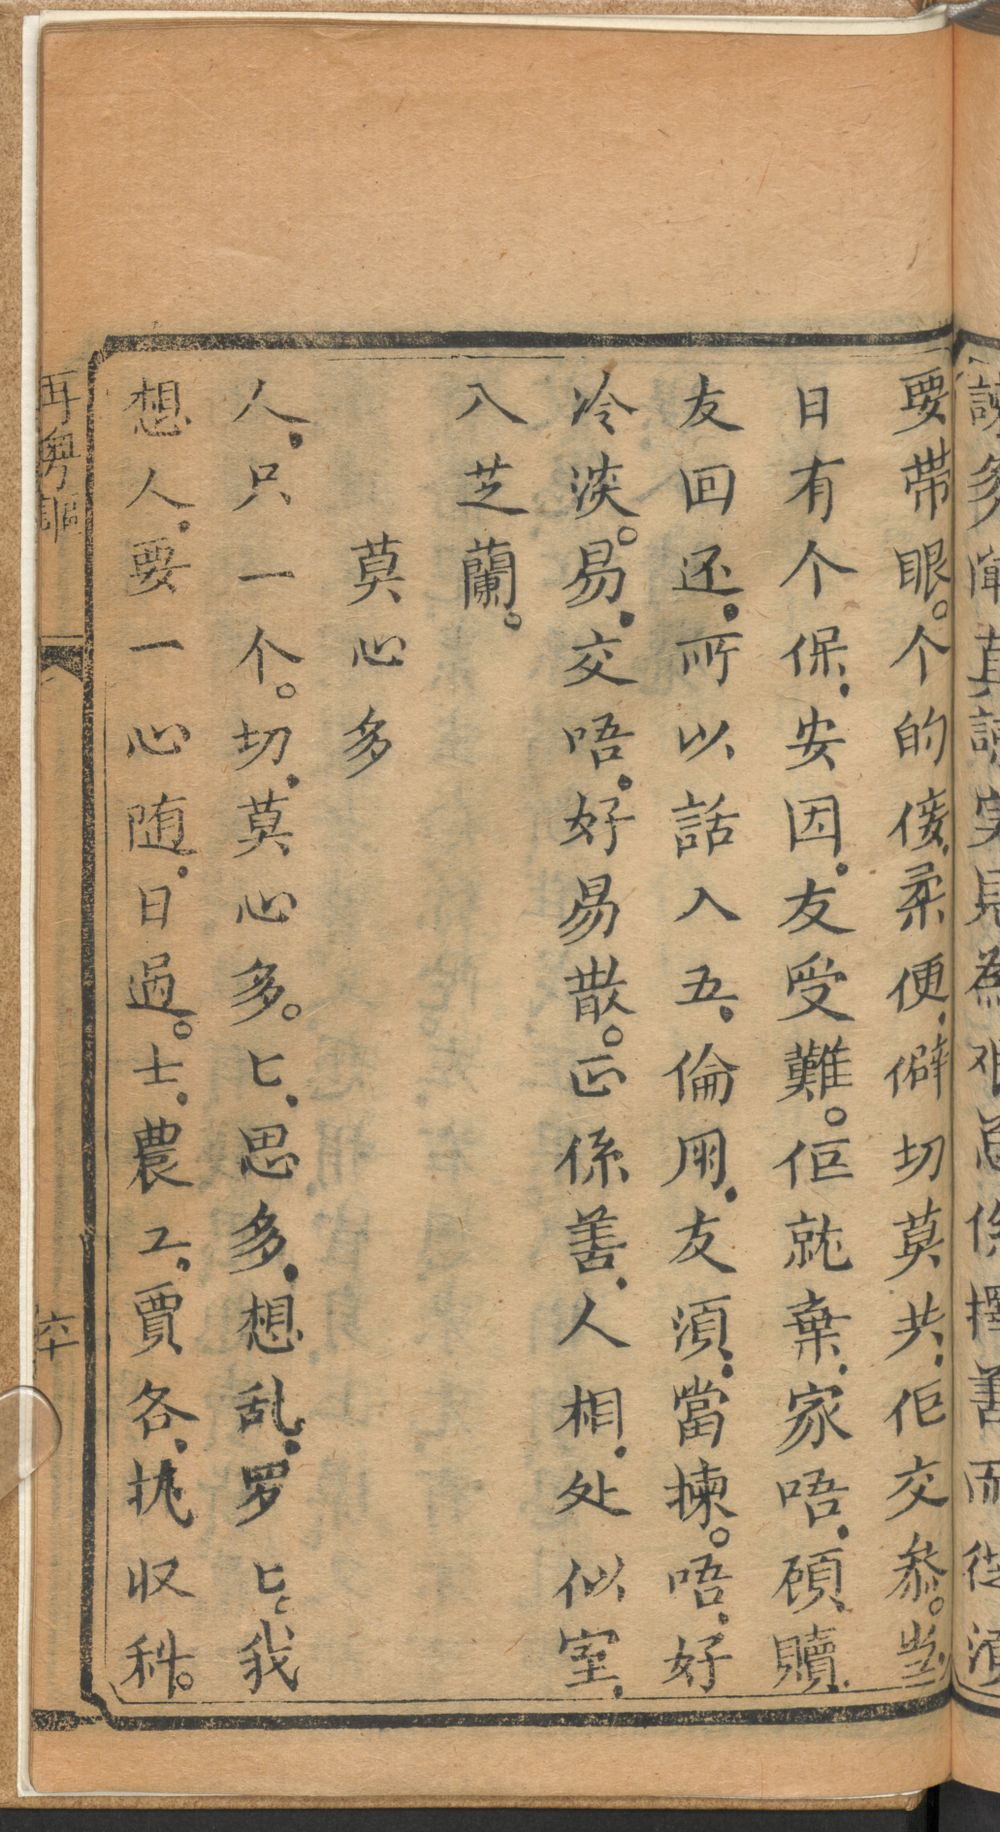 要带眼。个的㑄.柔便.僻切莫共.佢交叅。当
日有个保.安因.友受難。佢就棄.家唔.顧.贖.
友回还.所以話入五.倫用.友須.當揀。唔.好
冷淡。易.交唔.好易散。正係善.人相.处似室.
入芝蘭。
莫心多
人.只一个。切.莫心多。匕.思多.想乱.罗匕.我
想人.要一心随.日過。士.農工.賈各.执收科。
再粤謳
六十